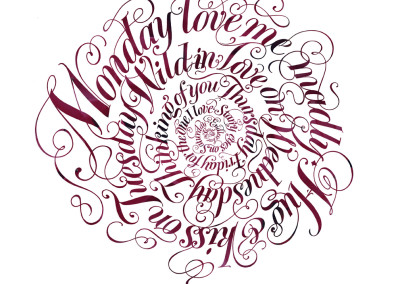 Monday love me madly. Hug & kiss on Tuesday Wild in love on Wednesday Thinking of you Thursday Friday for the one I love eyes on